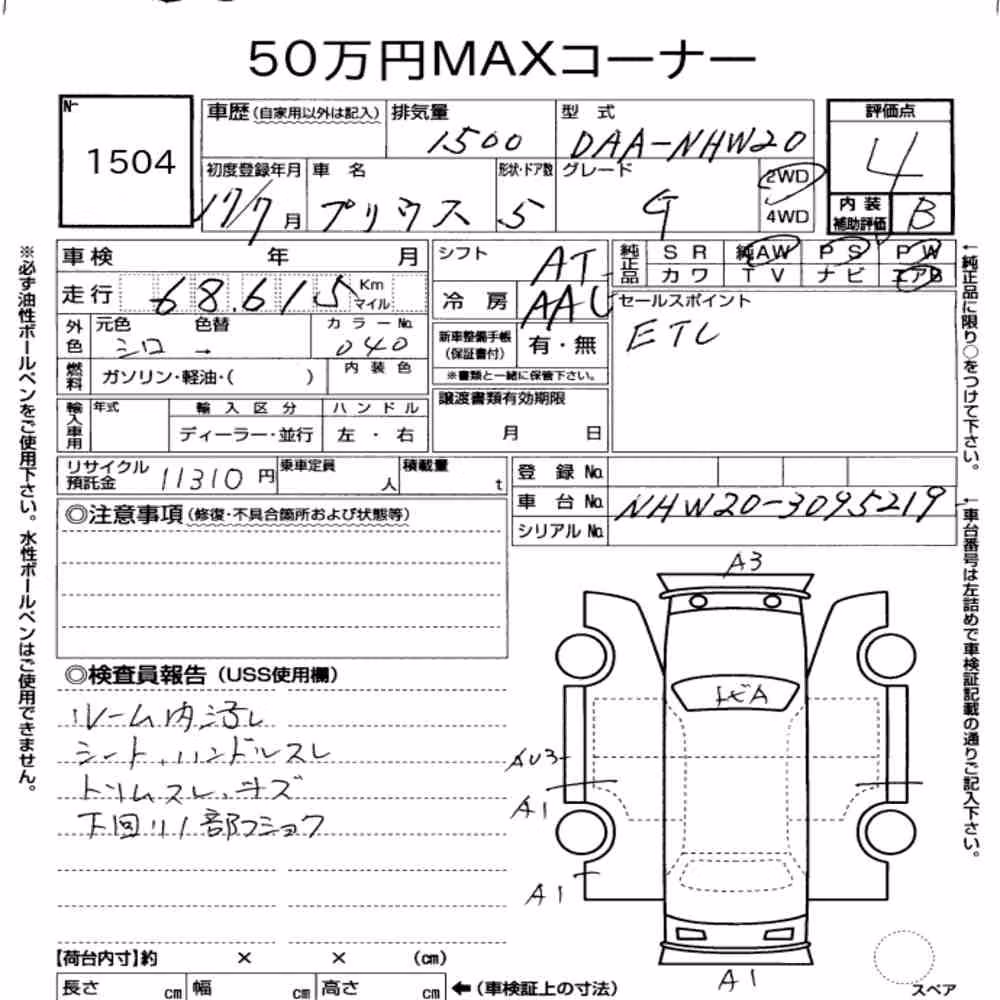 50万円MAXコーナー
No
1504
車歴 (自家用以外は記入) 排気量 型式 評価点
1500 DAA-NHW20 4
初度登録年月 車名 形状・ドア数 グレード 2WD
17/7月 プリウス 5 G 4WD
内装補助評価 B
車検 年 月
シフト AT
純正品 SR 純AW PS PW
カワ TV ナビ エアB
走行 68,615 Km マイル
冷房 AAC
セールスポイント
外色 元色 色替 カラーNo.
シロ → 040
新車整備手帳(保証書付) 有・無
※書類と一緒に保管下さい。
燃料 ガソリン・軽油・( ) 内装色
譲渡書類有効期限
月 日
輸入車用 年式 輸入区分 ハンドル
ディーラー・並行 左・右
リサイクル預託金 11310円 乗車定員 人 積載量 t
登録No.
車台No. NHW20-3095219
シリアルNo.
◎注意事項(修復・不具合箇所および状態等)
◎検査員報告(USS使用欄)
ルーム内汚レ
シート、ハンドルスレ
トリムスレ、キズ
A3
トビA
A1
A1
A1
【荷台内寸】約 × × (cm)
長さ cm 幅 cm 高さ cm ←(車検証上の寸法)
スペア
※必ず油性ボールペンをご使用下さい。水性ボールペンはご使用できません。
←純正品に限り○をつけて下さい。
←車台番号は左詰めで車検証記載の通りご記入下さい。